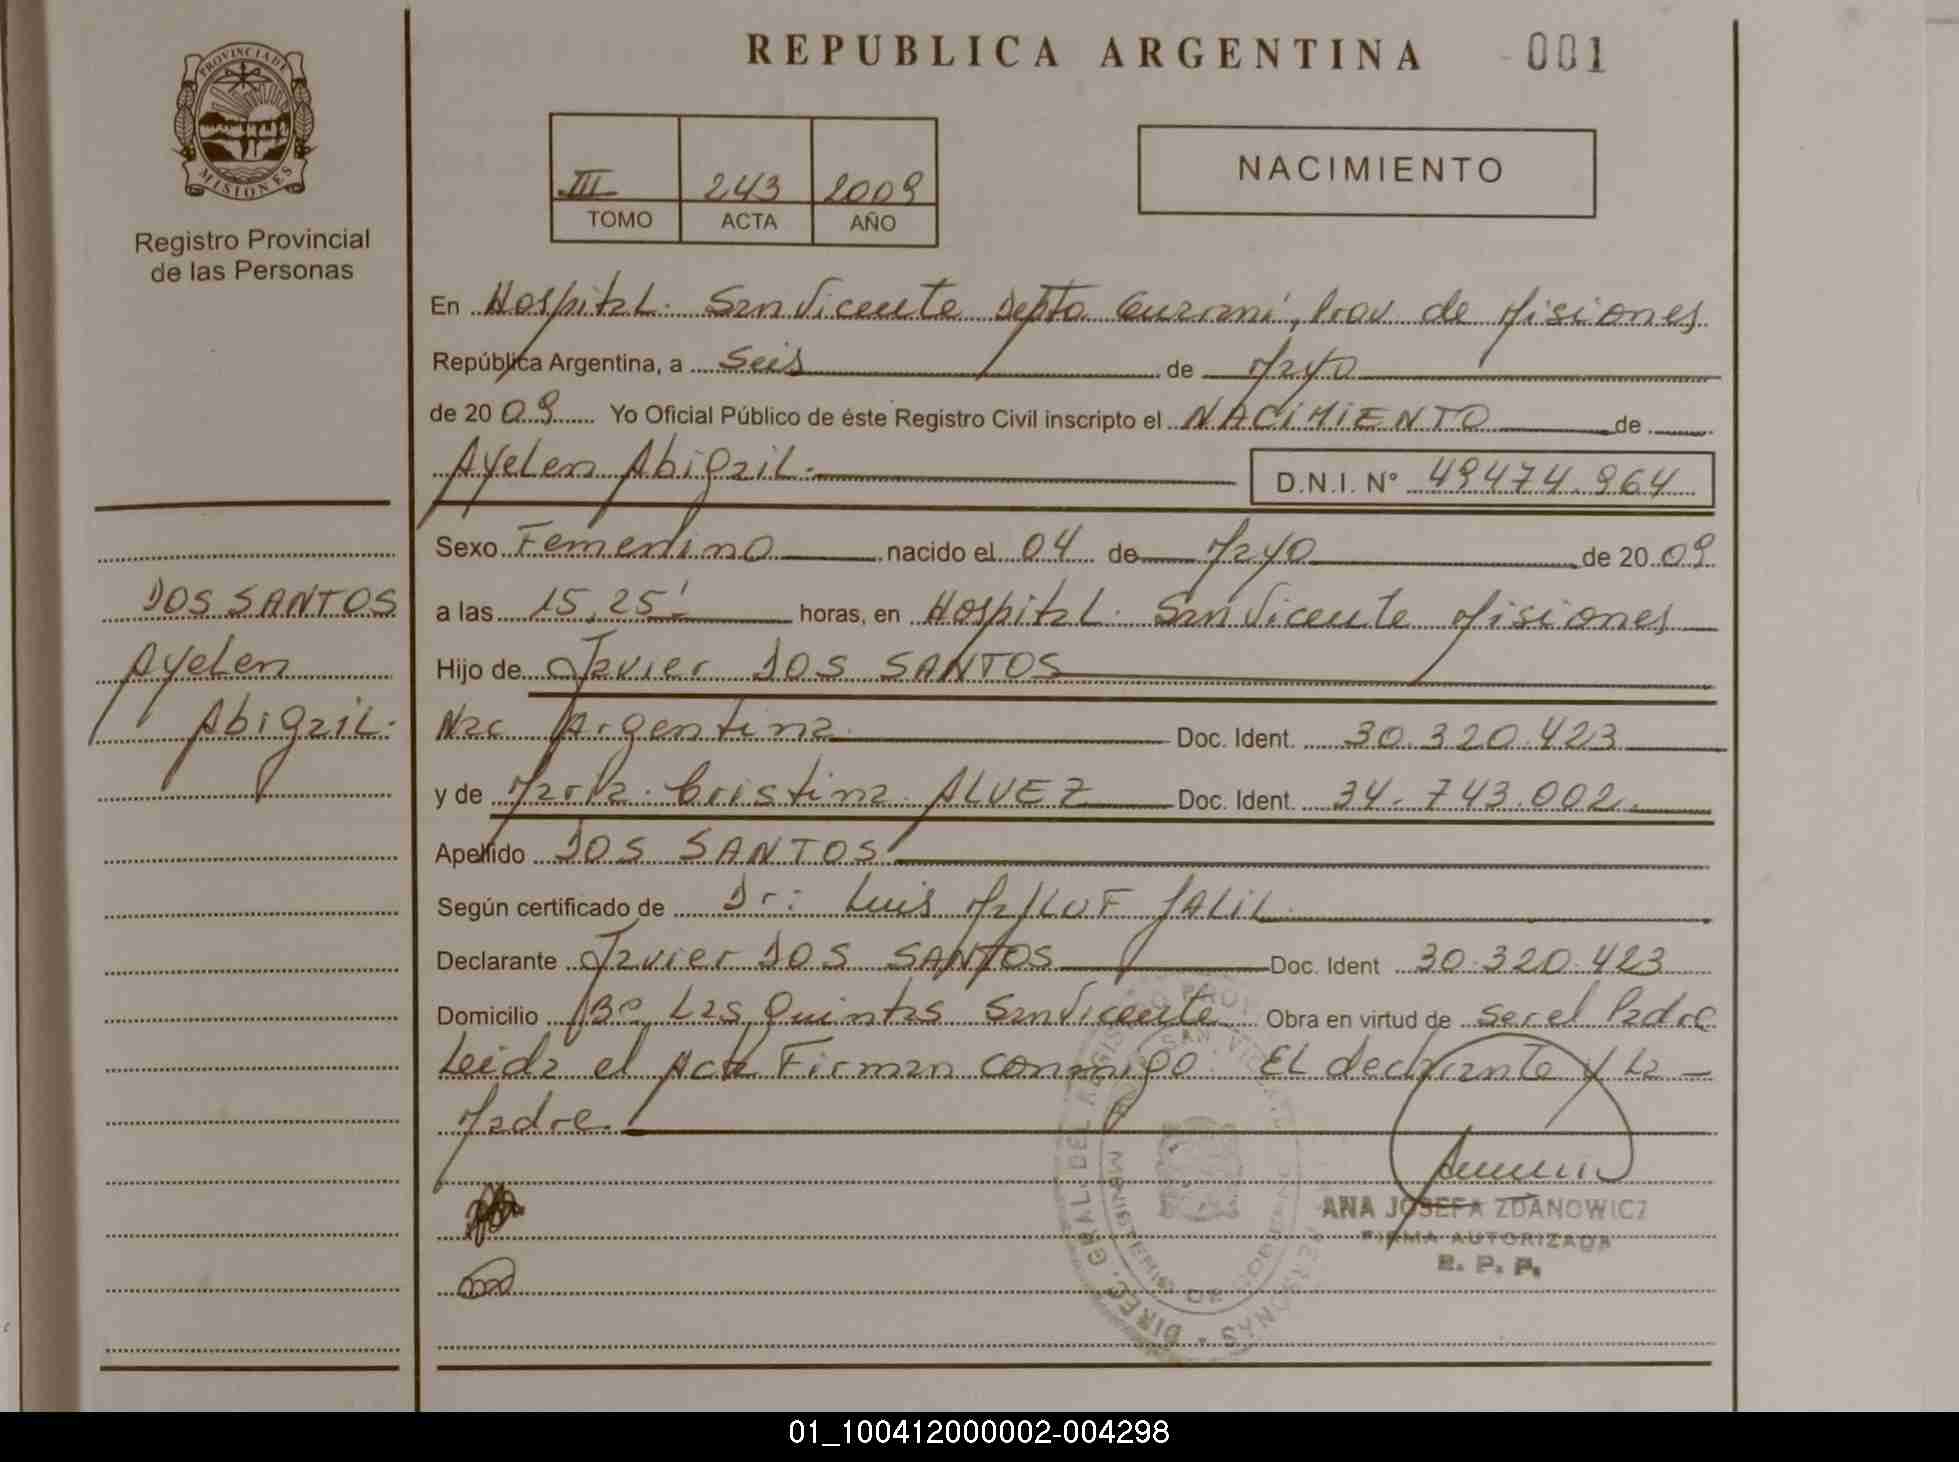 REPUBLICA ARGENTINA 001
PROVINCIA DE
MISIONES
Registro Provincial
de las Personas
III 243 2009
TOMO ACTA AÑO
NACIMIENTO
En Hospital. San Vicente Depto Guaraní, Prov de Misiones
República Argentina, a Seis de Mayo
de 2009 Yo Oficial Público de éste Registro Civil inscripto el NACIMIENTO de
Ayelen Abigail.
D.N.I. N° 49474.964
Sexo Femenino nacido el 04 de Mayo de 2009
DOS SANTOS
Ayelen
Abigail.
a las 15,25' horas, en Hospital. San Vicente Misiones
Hijo de Javier DOS SANTOS
Nac Argentina Doc. Ident. 30.320.423
y de María Cristina ALVEZ Doc. Ident. 34.743.002.
Apellido DOS SANTOS
Según certificado de Dr: Luis JALIL
Declarante Javier DOS SANTOS Doc. Ident 30.320.423
Domicilio B° Las Quintas San Vicente Obra en virtud de ser el Padre
Leida el Acta Firman conmigo El declarante y La
Madre.
DIREC. GRAL. DEL REGISTRO PROV. PERSONAS
MINISTERIO DE GOBIERNO
SAN VICENTE
ANA JOSEFA ZDANOWICZ
FIRMA AUTORIZADA
R. P. P.
01_100412000002-004298